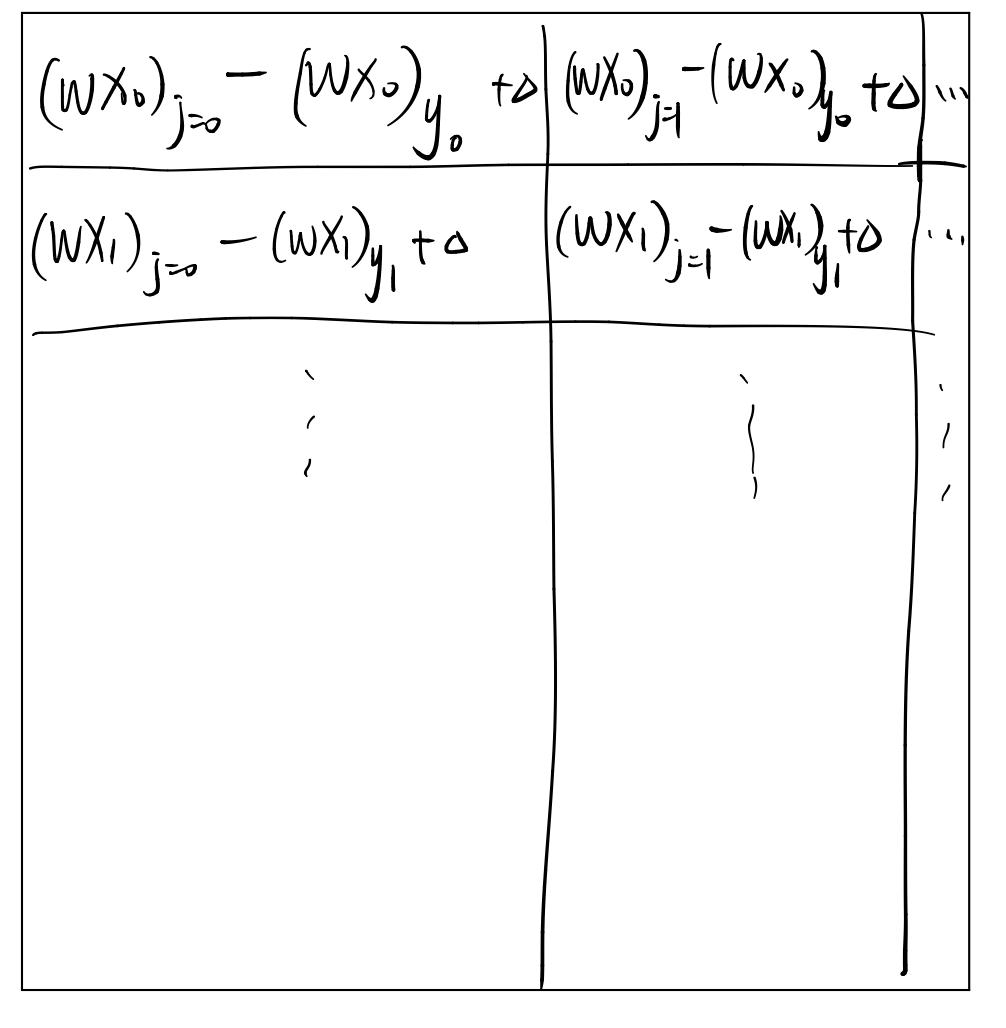 (WX₀)ⱼ₌₀ − (WX₀)y₀ +Δ (WX₀)ⱼ₌₁ − (WX₀)y₀ +Δ ...
(WX₁)ⱼ₌₀ − (WX₁)y₁ +Δ (WX₁)ⱼ₌₁ − (WX₁)y₁ +Δ ...
⋮ ⋮ ⋮